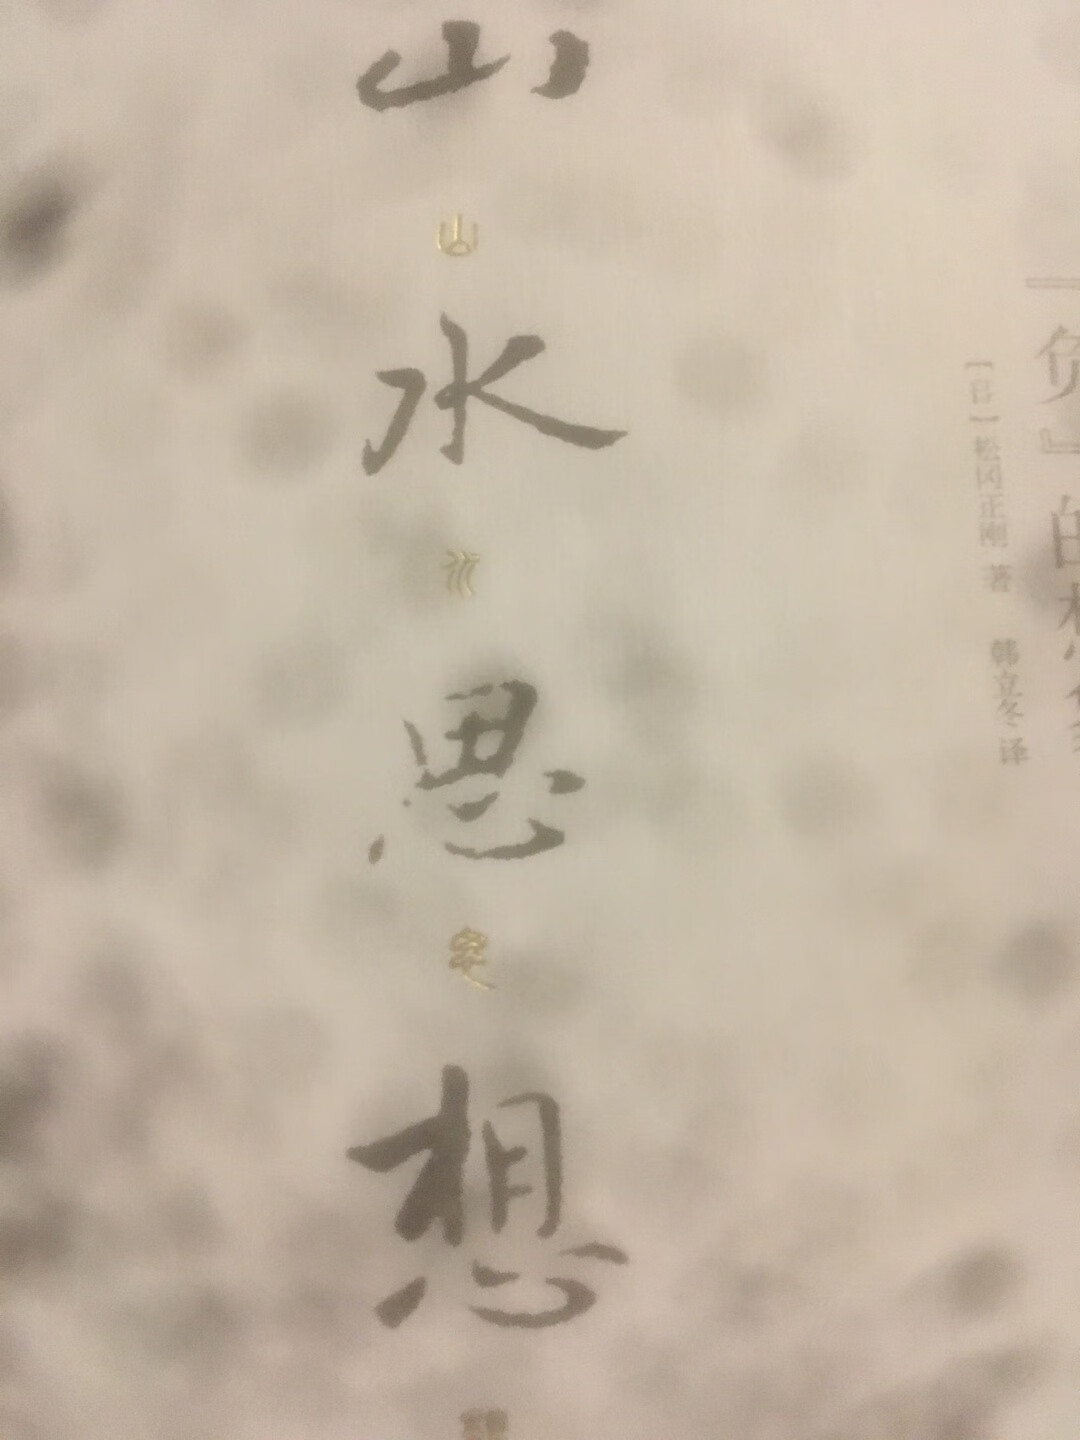 山水思想
『负』的想象
【日】松冈正刚 著 韩立冬 译